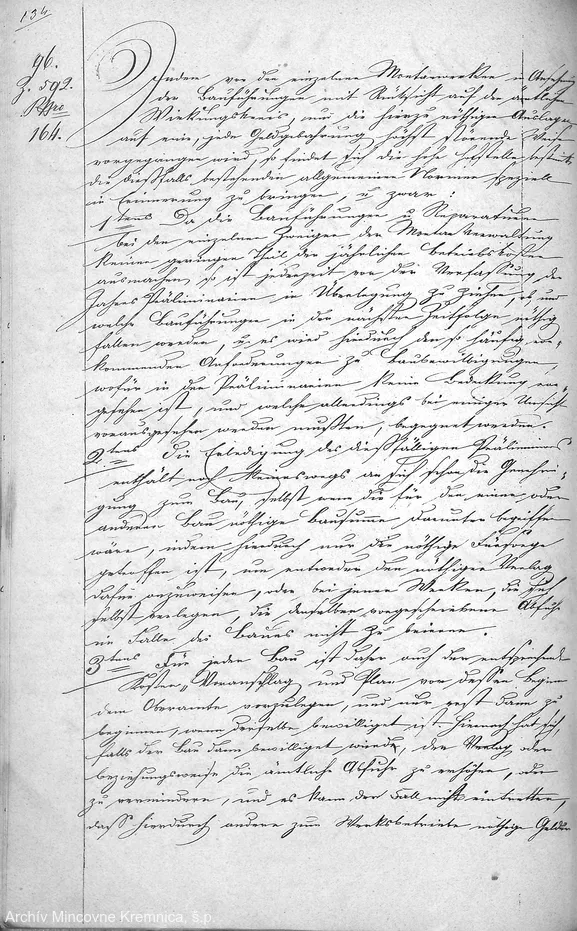 134
96.
Z. 592.
164.
Indem vor den einzelnen Montanwerken in Ansehung
der Bauführungen mit Rücksicht auf den ämtlichen
Wirkungskreis, und die hierzu nöthigen Auslagen
auf eine, jede Geldgebahrung höchst störende Weise
vorgegangen wird, so findet sich die hohe Hofstelle bestimmt
die dießfalls bestehenden allgemeinen Normen speziell
in Erinnerung zu bringen, u zwar:
1tens Da die Bauführungen u Reparaturen
bei den einzelnen Zweigen der Montan Verwaltung
keinen geringen Theil der jährlichen Betriebskosten
ausmachen, so ist jederzeit vor der Verfassung der
Jahres Präliminarien in Überlegung zu ziehen, ob und
welche Bauführungen in der nächsten Zeitfolge nöthig
fallen werden, u es wird hierdurch den so häufig vor-
kommenden Anforderungen zu Baubewilligungen,
wofür in den Präliminarien keine Bedeckung vor-
gesehen ist, und welche allerdings bei einiger Umsicht
vorausgesehen werden mußten, begegnet werden.
2tens Die Erledigung des dießfälligen Präliminars
enthält noch keineswegs an sich schon die Genehmi-
gung zum Bau, selbst wenn die für den einen oder
anderen Bau nöthige Bausumme darunter begriffen
wäre, indem hierdurch nur die nöthige Fürsorge
getroffen ist, um entweder den nöthigen Verlag
dafür anzuweisen, oder bei jenen Werken, die sich
selbst verlegen, die denselben vorgeschriebene Abfuhr
im Falle des Baues nicht zu beirren.
3tens Für jeden Bau ist daher auch der entsprechende
Kosten Voranschlag und Plan vor dessen Beginn
dem Oberamte vorzulegen, und nur erst dann zu
beginnen, wenn derselbe bewilliget ist hiernach hat sich,
falls der Bau dann bewilliget wurde, der Verlag oder
beziehungsweise die ämtliche Abfuhr zu erhöhen, oder
zu vermindern, und es kann der Fall nicht eintretten,
daß hierdurch andere zum Werksbetriebe nöthige Gelder
Archív Mincovne Kremnica, š.p.